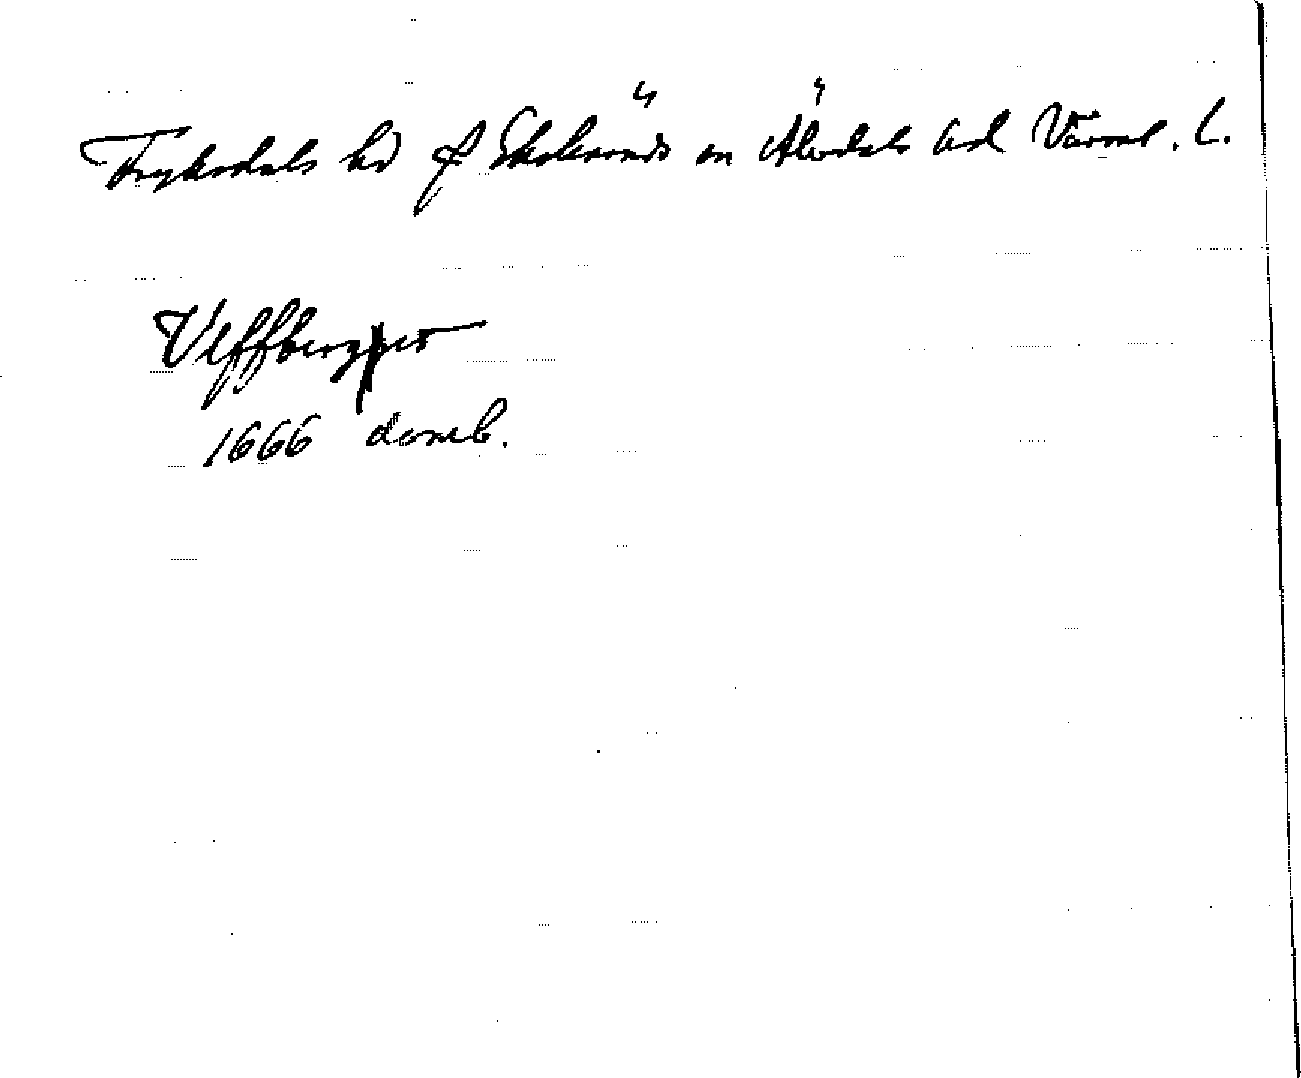 Fryksdals hd f Ekshärads sn Älvdals hd Värml. l.
Ulffbergget
1666 domb.